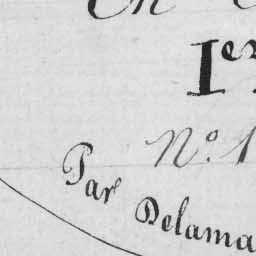 Ier
No. 1
Par Delama